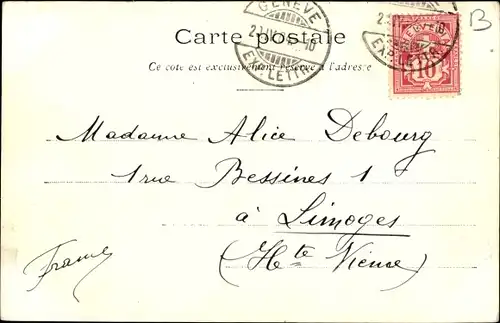 GENÈVE
EXP. LETTR.
EXP. LE
10
B
Carte postale
Ce côté est exclusivement réservé à l'adresse
Madame Alice Debourg
1 rue Bessines 1
à Limoges
(Hte Vienne)
France